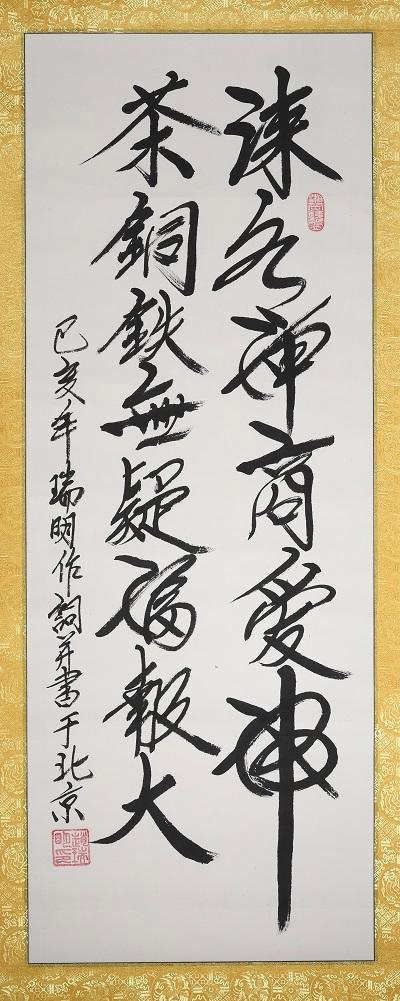 諫名神商愛神
茶銅鉄無疑福報大
己亥年瑞明作詞并書于北京